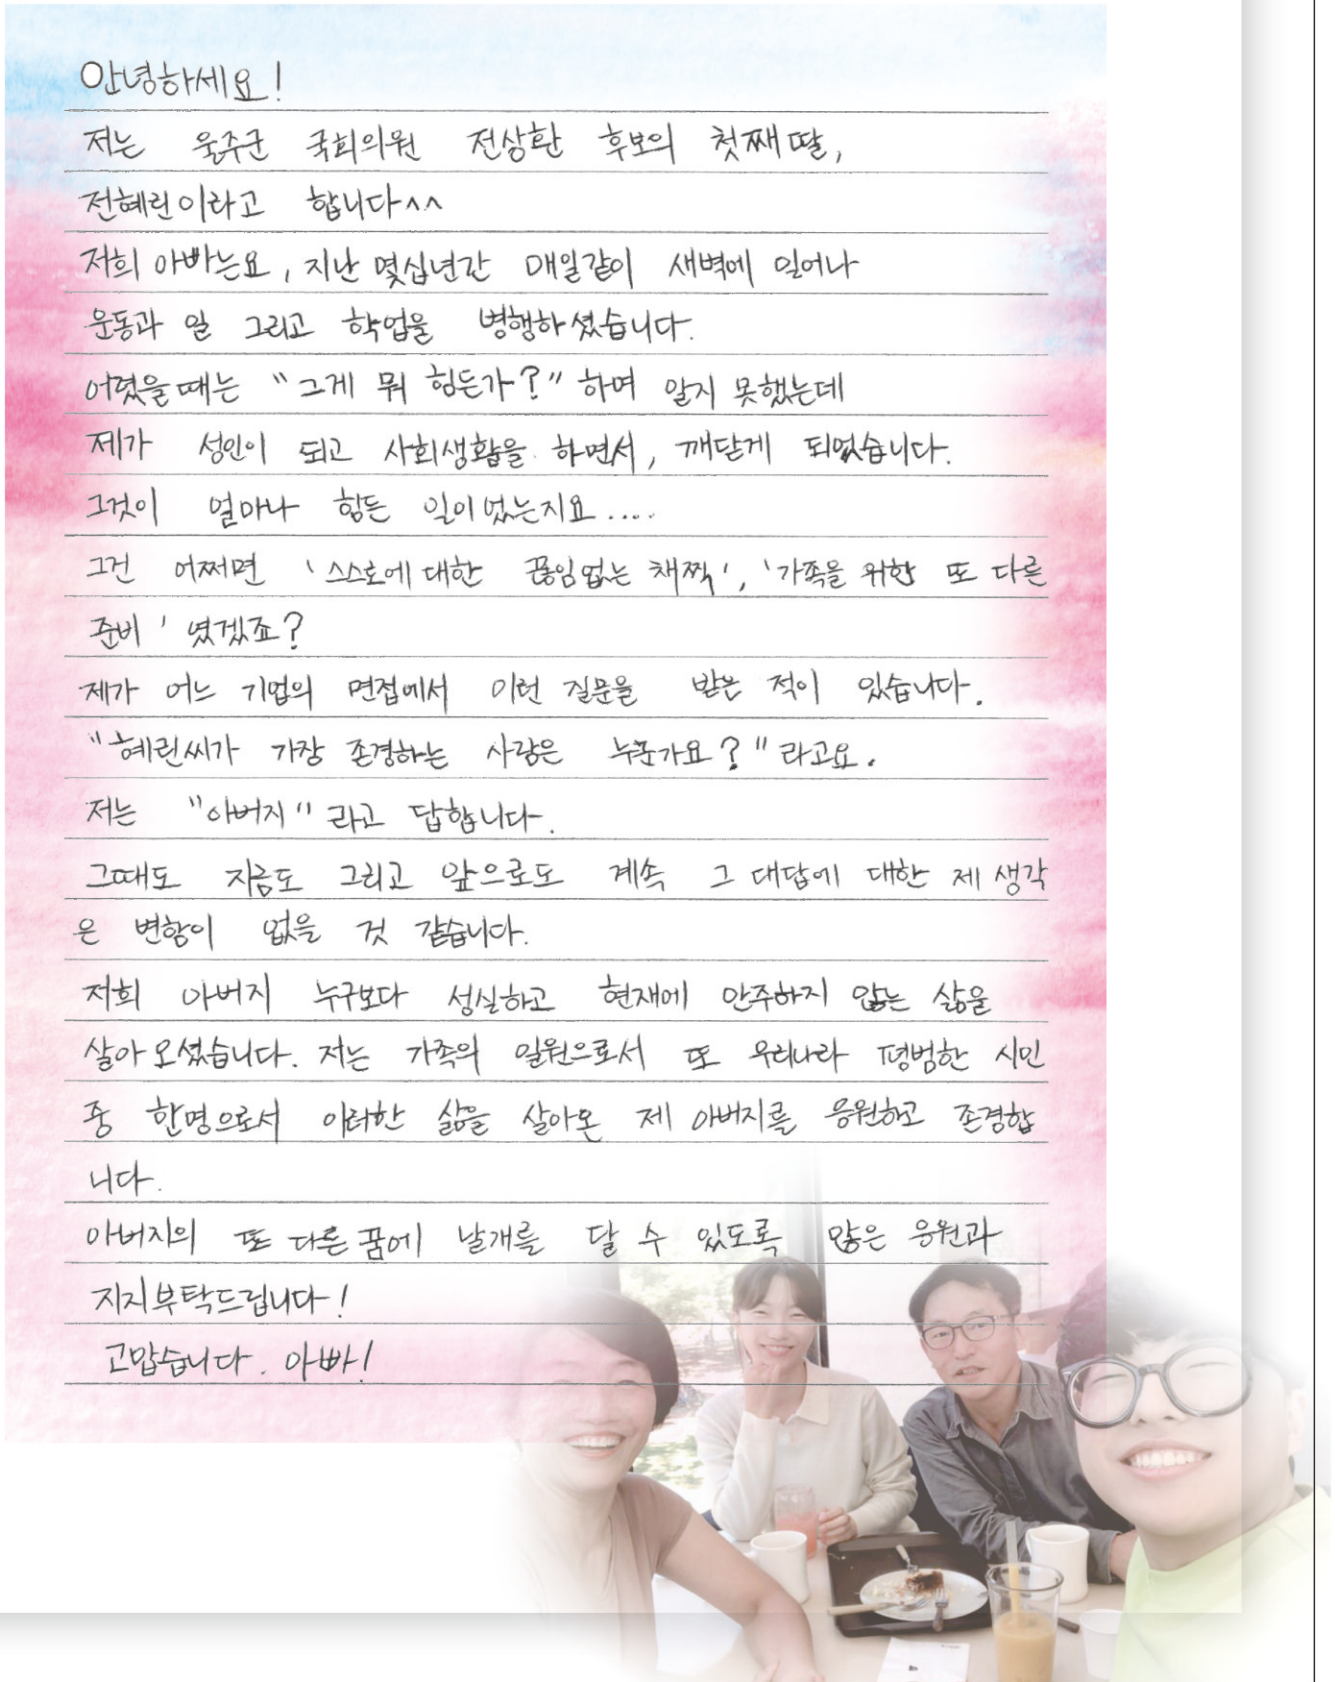 안녕하세요!
저는 울주군 국회의원 전상환 후보의 첫째 딸,
전혜린이라고 합니다^^
저희 아빠는요, 지난 몇십년간 매일같이 새벽에 일어나
운동과 일 그리고 학업을 병행하셨습니다.
어렸을때는 "그게 뭐 힘든가?" 하며 알지 못했는데
제가 성인이 되고 사회생활을 하면서, 깨닫게 되었습니다.
그것이 얼마나 힘든 일이었는지요....
그건 어쩌면 '스스로에 대한 끊임없는 채찍', '가족을 위한 또 다른
준비' 였겠죠?
제가 어느 기업의 면접에서 이런 질문을 받은 적이 있습니다.
"혜린씨가 가장 존경하는 사람은 누군가요?" 라고요.
저는 "아버지" 라고 답합니다.
그때도 지금도 그리고 앞으로도 계속 그 대답에 대한 제 생각
은 변함이 없을 것 같습니다.
저희 아버지 누구보다 성실하고 현재에 안주하지 않는 삶을
살아 오셨습니다. 저는 가족의 일원으로서 또 우리나라 평범한 시민
중 한명으로서 이러한 삶을 살아온 제 아버지를 응원하고 존경합
니다.
아버지의 또 다른 꿈에 날개를 달 수 있도록 많은 응원과
지지부탁드립니다!
고맙습니다. 아빠!